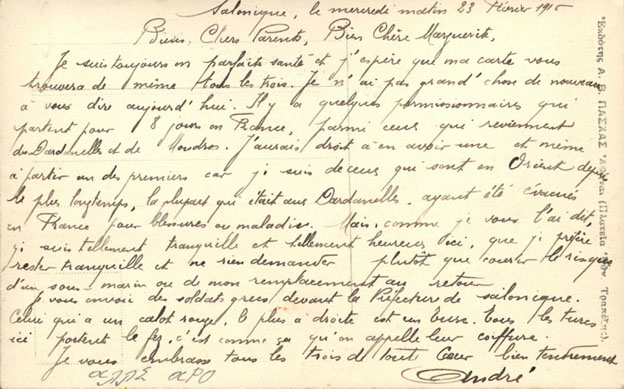 Salonique, le mercredi matin 23 Février 191
Biens Chers Parents, Bien Chère Marguerite,
Je suis toujours en parfaite santé et j'espère que ma carte vous
trouvera de même tous les trois. Je n'ai pas grand'chose de nouveau
à vous dire aujourd'hui. Il y a quelques permissionnaires qui
partent pour 8 jours en France, parmi ceux qui reviennent
des Dardanelles et de Moudros. J'aurais droit à en avoir une et même
à partir un des premiers car je suis de ceux qui sont en Orient depuis
le plus longtemps, la plupart qui était aux Dardanelles, ayant été évacués
en France pour blessures ou maladies. Mais, comme je vous l'ai dit
je suis tellement tranquille et tellement heureux ici, que je préfère
rester tranquille et ne rien demander plutôt que courir le risque
d'un sous-marin ou de mon remplacement au retour
Je vous envoie des soldats grecs devant la Préfecture de Salonique.
Celui qui a un calot rouge, le plus à droite est un turc. Tous les turcs
ici portent le fez, c'est comme ça qu'on appelle leur coiffure.
Je vous embrasse tous les trois de tout cœur bien tendrement
André
Ἐκδότης Α. Β. ΠΑΣΧΑΣ Ἀθῆναι (Πλατεῖα